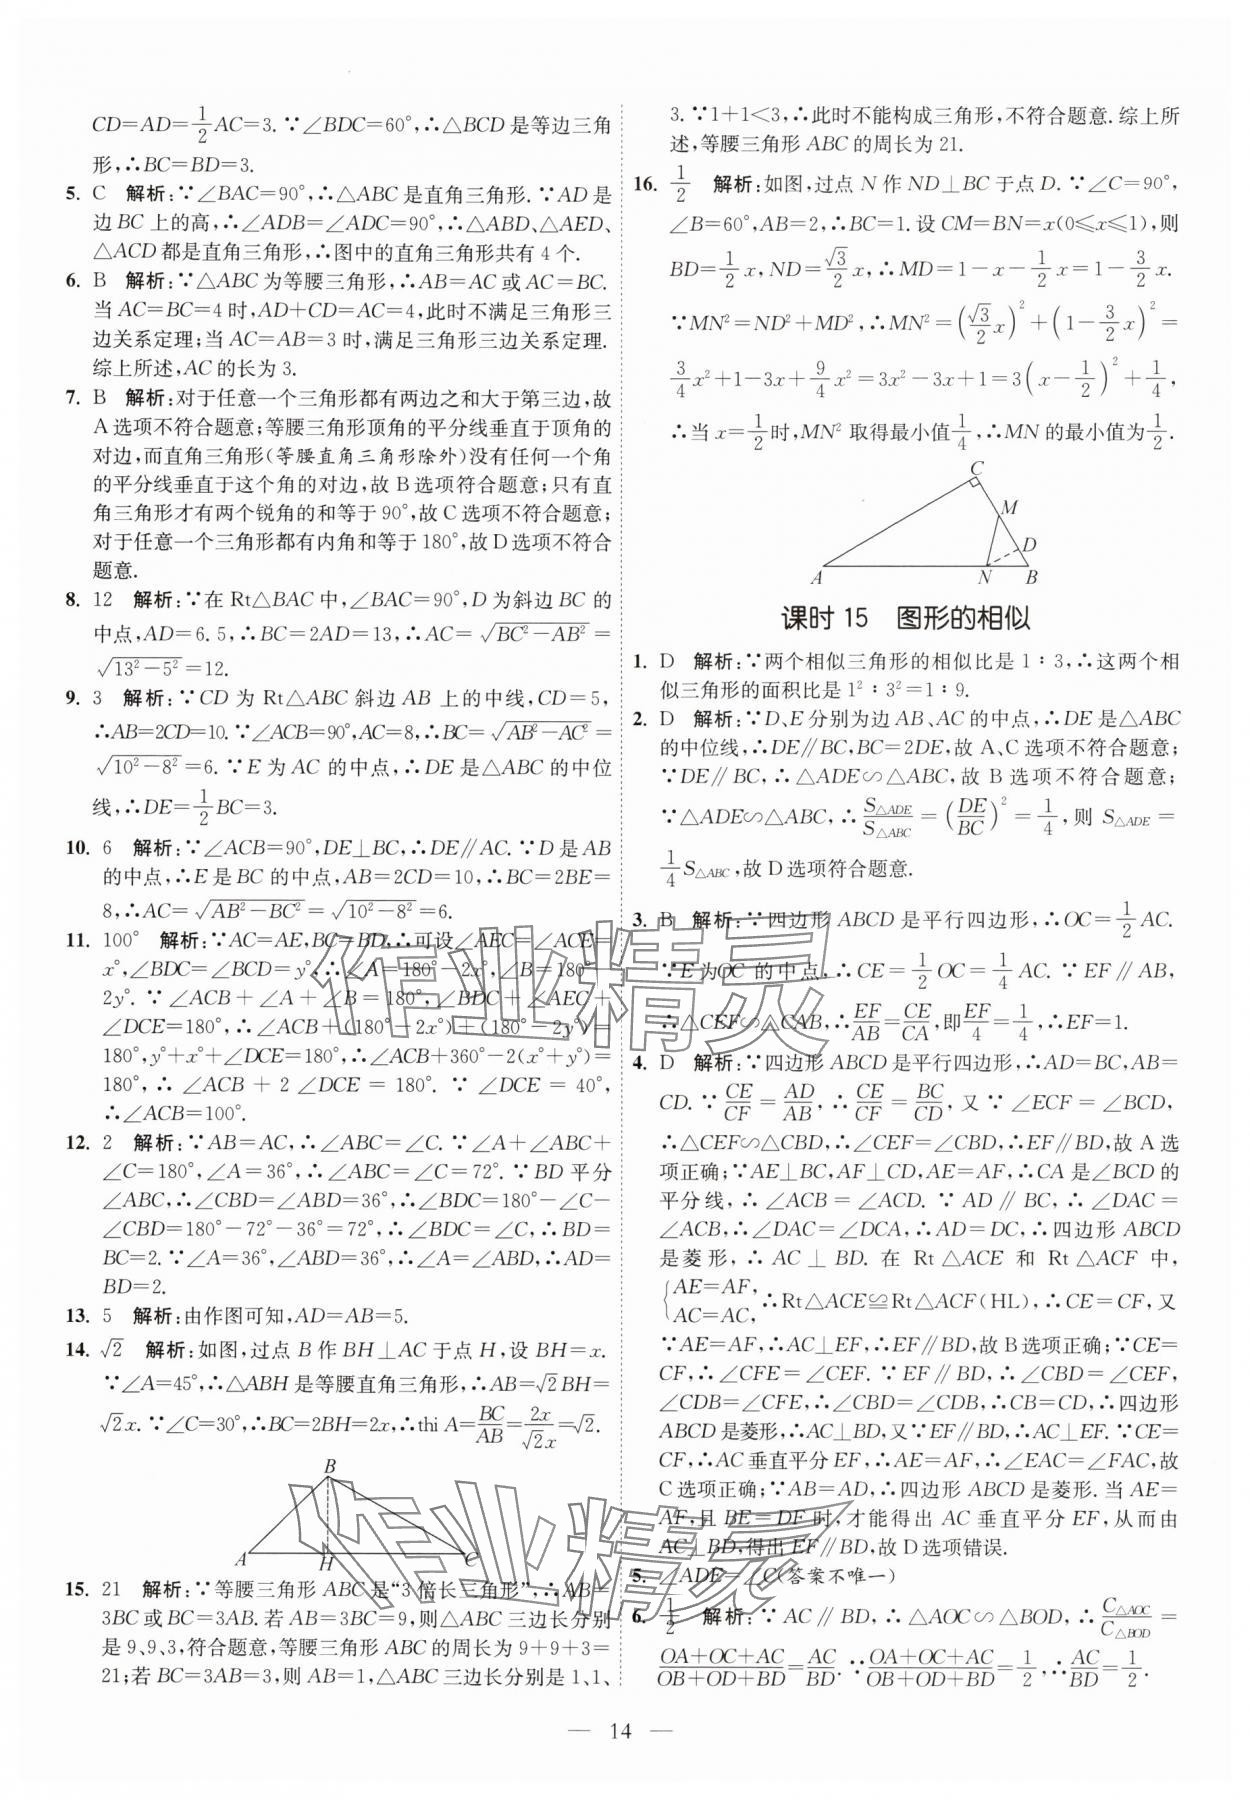 CD=AD=1/2AC=3.∵∠BDC=60°,∴△BCD 是等边三角
形,∴BC=BD=3.
5. C 解析:∵∠BAC=90°,∴△ABC 是直角三角形.∵AD 是
边 BC 上的高,∴∠ADB=∠ADC=90°,∴△ABD、△AED、
△ACD 都是直角三角形,∴图中的直角三角形共有 4 个.
6. B 解析:∵△ABC 为等腰三角形,∴AB=AC 或 AC=BC.
当 AC=BC=4 时,AD+CD=AC=4,此时不满足三角形三
边关系定理;当 AC=AB=3 时,满足三角形三边关系定理.
综上所述,AC 的长为 3.
7. B 解析:对于任意一个三角形都有两边之和大于第三边,故
A 选项不符合题意;等腰三角形顶角的平分线垂直于顶角的
对边,而直角三角形(等腰直角三角形除外)没有任何一个角
的平分线垂直于这个角的对边,故 B 选项符合题意;只有直
角三角形才有两个锐角的和等于 90°,故 C 选项不符合题意;
对于任意一个三角形都有内角和等于 180°,故 D 选项不符合
题意.
8. 12 解析:∵在 Rt△BAC 中,∠BAC=90°,D 为斜边 BC 的
中点,AD=6.5,∴BC=2AD=13,∴AC=√(BC²-AB²)=
√(13²-5²)=12.
9. 3 解析:∵CD 为 Rt△ABC 斜边 AB 上的中线,CD=5,
∴AB=2CD=10.∵∠ACB=90°,AC=8,∴BC=√(AB²-AC²)=
√(10²-8²)=6.∵E 为 AC 的中点,∴DE 是△ABC 的中位
线,∴DE=1/2BC=3.
10. 6 解析:∵∠ACB=90°,DE⊥BC,∴DE∥AC.∵D 是 AB
的中点,∴E 是 BC 的中点,AB=2CD=10,∴BC=2BE=
8,∴AC=√(AB²-BC²)=√(10²-8²)=6.
11. 100° 解析:∵AC=AE,BC=BD,∴可设∠AEC=∠ACE=
x°,∠BDC=∠BCD=y°,∴∠A=180°-2x°,∠B=180°-
2y°.∵∠ACB+∠A+∠B=180°,∠BDC+∠AEC+
∠DCE=180°,∴∠ACB+(180°-2x°)+(180°-2y°)=
180°,y°+x°+∠DCE=180°,∴∠ACB+360°-2(x°+y°)=
180°,∴∠ACB+2∠DCE=180°.∵∠DCE=40°,
∴∠ACB=100°.
12. 2 解析:∵AB=AC,∴∠ABC=∠C.∵∠A+∠ABC+
∠C=180°,∠A=36°,∴∠ABC=∠C=72°.∵BD 平分
∠ABC,∴∠CBD=∠ABD=36°,∴∠BDC=180°-∠C-
∠CBD=180°-72°-36°=72°,∴∠BDC=∠C,∴BD=
BC=2.∵∠A=36°,∠ABD=36°,∴∠A=∠ABD,∴AD=
BD=2.
13. 5 解析:由作图可知,AD=AB=5.
14. √2 解析:如图,过点 B 作 BH⊥AC 于点 H,设 BH=x.
∵∠A=45°,∴△ABH 是等腰直角三角形,∴AB=√2BH=
√2x.∵∠C=30°,∴BC=2BH=2x,∴thi A=BC/AB=2x/√2x=√2.
B
A H C
15. 21 解析:∵等腰三角形 ABC 是“3 倍长三角形”,∴AB=
3BC 或 BC=3AB.若 AB=3BC=9,则△ABC 三边长分别
是 9、9、3,符合题意,等腰三角形 ABC 的周长为 9+9+3=
21;若 BC=3AB=3,则 AB=1,△ABC 三边长分别是 1、1、
3.∵1+1<3,∴此时不能构成三角形,不符合题意.综上所
述,等腰三角形 ABC 的周长为 21.
16. 1/2 解析:如图,过点 N 作 ND⊥BC 于点 D.∵∠C=90°,
∠B=60°,AB=2,∴BC=1.设 CM=BN=x(0≤x≤1),则
BD=1/2x,ND=√3/2x,∴MD=1-x-1/2x=1-3/2x.
∵MN²=ND²+MD²,∴MN²=(√3/2x)²+(1-3/2x)²=
3/4x²+1-3x+9/4x²=3x²-3x+1=3(x-1/2)²+1/4,
∴当 x=1/2时,MN² 取得最小值1/4,∴MN 的最小值为1/2.
C
M
D
A N B
课时 15 图形的相似
1. D 解析:∵两个相似三角形的相似比是 1∶3,∴这两个相
似三角形的面积比是 1²∶3²=1∶9.
2. D 解析:∵D、E 分别为边 AB、AC 的中点,∴DE 是△ABC
的中位线,∴DE∥BC,BC=2DE,故 A、C 选项不符合题意;
∵DE∥BC,∴△ADE∽△ABC,故 B 选项不符合题意;
∵△ADE∽△ABC,∴S△ADE/S△ABC=(DE/BC)²=1/4,则 S△ADE=
1/4S△ABC,故 D 选项符合题意.
3. B 解析:∵四边形 ABCD 是平行四边形,∴OC=1/2AC.
∵E 为 OC 的中点,∴CE=1/2OC=1/4AC.∵EF∥AB,
∴△CEF∽△CAB,∴EF/AB=CE/CA,即EF/4=1/4,∴EF=1.
4. D 解析:∵四边形 ABCD 是平行四边形,∴AD=BC,AB=
CD.∵CE/CF=AD/AB,∴CE/CF=BC/CD,又∵∠ECF=∠BCD,
∴△CEF∽△CBD,∴∠CEF=∠CBD,∴EF∥BD,故 A 选
项正确;∵AE⊥BC,AF⊥CD,AE=AF,∴CA 是∠BCD 的
平分线,∴∠ACB=∠ACD.∵AD∥BC,∴∠DAC=
∠ACB,∴∠DAC=∠DCA,∴AD=DC,∴四边形 ABCD
是菱形,∴AC⊥BD.在 Rt△ACE 和 Rt△ACF 中,
{AE=AF,
AC=AC, ∴Rt△ACE≌Rt△ACF(HL),∴CE=CF,又
∵AE=AF,∴AC⊥EF,∴EF∥BD,故 B 选项正确;∵CE=
CF,∴∠CFE=∠CEF.∵EF∥BD,∴∠CBD=∠CEF,
∠CDB=∠CFE,∴∠CBD=∠CDB,∴CB=CD,∴四边形
ABCD 是菱形,∴AC⊥BD,又∵EF∥BD,∴AC⊥EF.∵CE=
CF,∴AC 垂直平分 EF,∴AE=AF,∴∠EAC=∠FAC,故
C 选项正确;∵AB=AD,∴四边形 ABCD 是菱形.当 AE=
AF,且 BE=DF 时,才能得出 AC 垂直平分 EF,从而由
AC⊥BD,得出 EF∥BD,故 D 选项错误.
5. ∠ADE=∠C(答案不唯一)
6. 1/2 解析:∵AC∥BD,∴△AOC∽△BOD,∴C△AOC/C△BOD=
OA+OC+AC/OB+OD+BD=AC/BD.∵OA+OC+AC/OB+OD+BD=1/2,∴AC/BD=1/2.
— 14 —
作业精灵
作业精灵